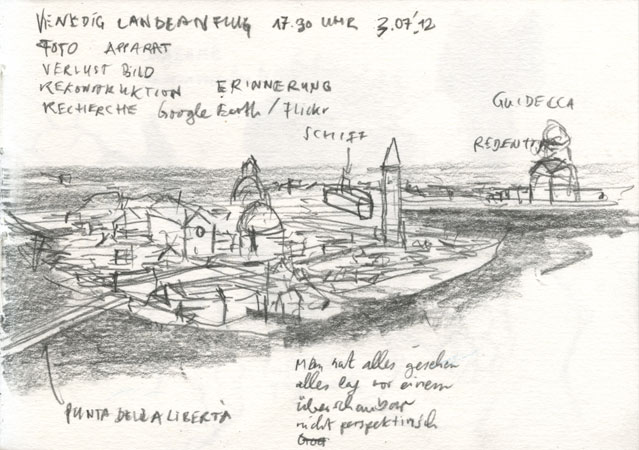 VENEDIG LANDEANFLUG 17.30 UHR 3.07.'12
FOTO APPARAT
VERLUST BILD
REKONSTRUKTION ERINNERUNG
RECHERCHE Google Earth / Flickr
SCHIFF
GUIDECCA
REDENTORE
Man hat alles gesehen
alles lag vor einem
überschaubar
nicht perspektivisch
PUNTA DELLA LIBERTÀ